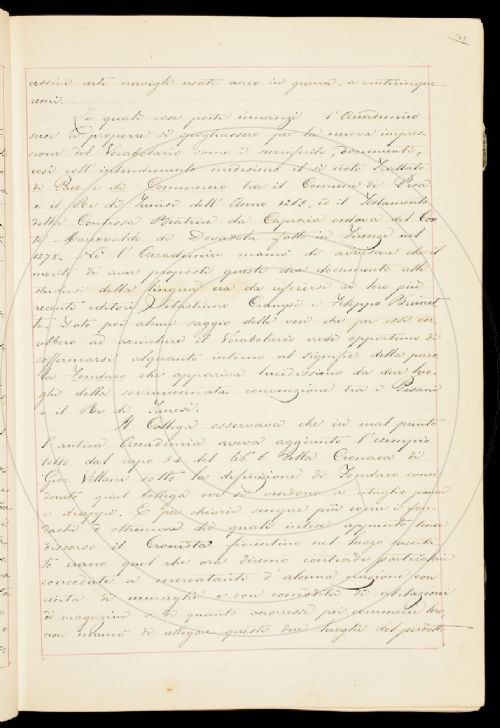 141
cessivi certi navigli usati anco in guerra, a venticinque
remi.
E queste cose poste innanzi l'Accademico
scese a proporre si spogliassero per la nuova impres-
sione del Vocabolario come i documenti,
così coll'intendimento medesimo il sì noto Trattato
di Pace e di Commercio tra il Comune di Pisa
e il Re di Tunisi dell'Anno 1265, ed il Testamento
della Contessa Beatrice da Capraia vedova del Con
te Marcovaldo di Dovadola fatto in Firenze nel
1278. Nè l'Accademico mancò di avvisare che il
merito di aver proposti questi due documenti alli
studiosi della lingua era da riferirsi ai loro più
recenti editori Sebastiano Ciampi e Filippo Brunet
ti. Dato poi alcun saggio delle voci che per essi ver
rebbero ad arricchire il Vocabolario credè opportuno di
soffermarsi alquanto intorno al signific. della paro
la Fondaco che appariva lucidissimo da due luo
ghi della sovraccennata convenzione tra i Pisani
e il Re di Tunisi.
Il Collega osservava che in mal punto
l'antica Accademia aveva aggiunto l'esempio
tolto dal capo 54 del Lib. 6 della Cronaca di
Gio: Villani sotto la definizione di Fondaco consi
derato qual bottega ove si vendono a ritaglio panni
e drappi. E per chiarir sempre più come i fon-
dachi d'oltremare dei quali intese appunto tener
discorso il Cronista fiorentino nel luogo succita-
to erano quel che ora diremo contrade particolari
concedute a mercatanti d'alcuna nazione con
cinta di muraglie e con comodità di abitazioni
di magazzini e di quanto occorresse pei commerci loro,
non mancò di allegare questi due luoghi del predetto